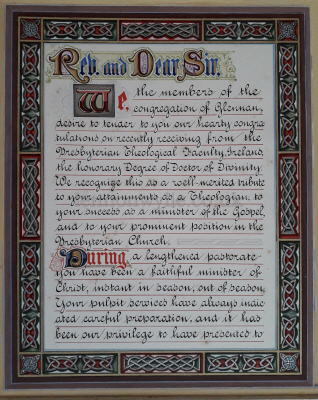 Rev. and Dear Sir,
We, the members of the
congregation of Glennan,
desire to tender to you our hearty congra
tulations on recently receiving from the
Presbyterian Theological Faculty, Ireland,
the honorary Degree of Doctor of Divinity.
We recognize this as a well-merited tribute
to your attainments as a Theologian, to
your success as a minister of the Gospel,
and to your prominent position in the
Presbyterian Church.
During a lengthened pastorate
you have been a faithful minister of
Christ, instant in season, out of season,
Your pulpit services have always indic
ated careful preparation, and it has
been our privilege to have presented to